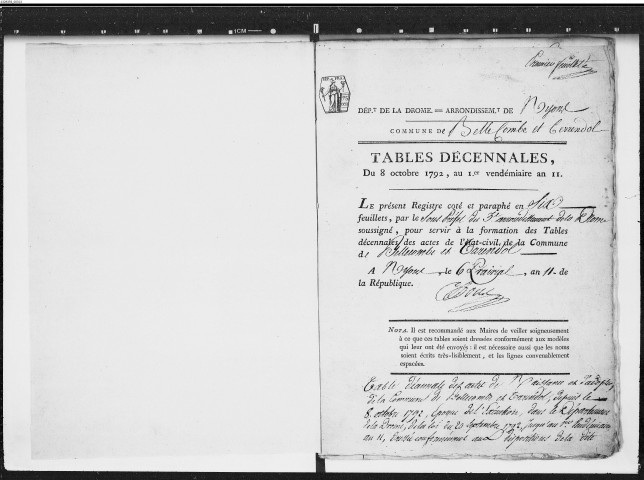 Premier feuillet
DÉP.T DE LA DROME. = ARRONDISSEM.T DE Nyons
COMMUNE DE Belle Combe et Tarendol
TABLES DÉCENNALES,
Du 8 octobre 1792, au 1.er vendémiaire an 11.
LE présent Registre coté et paraphé en Six
feuillets, par le Sous Préfet du 3e arrondissement de la Drome
soussigné, pour servir à la formation des Tables
décennales des actes de l'état-civil de la Commune
de Bellecombe et Tarendol
A Nyons, le 6 Prairial, an 11. de
la République.
NOTA. Il est recommandé aux Maires de veiller soigneusement
à ce que ces tables soient dressées conformément aux modèles
qui leur ont été envoyés : il est nécessaire aussi que les noms
soient écrits très-lisiblement, et les lignes convenablement
espacées.
Table décennale des actes de Naissance et d'adoption
de la Commune de Bellecombe et Tarendol, depuis le
8 octobre 1792, époque de l'Exécution, dans le Département
de la Drome, de la loi du 20 Septembre 1792, jusqu'au 1er Vendémiaire
an 11, Dressée conformément aux Dispositions de la